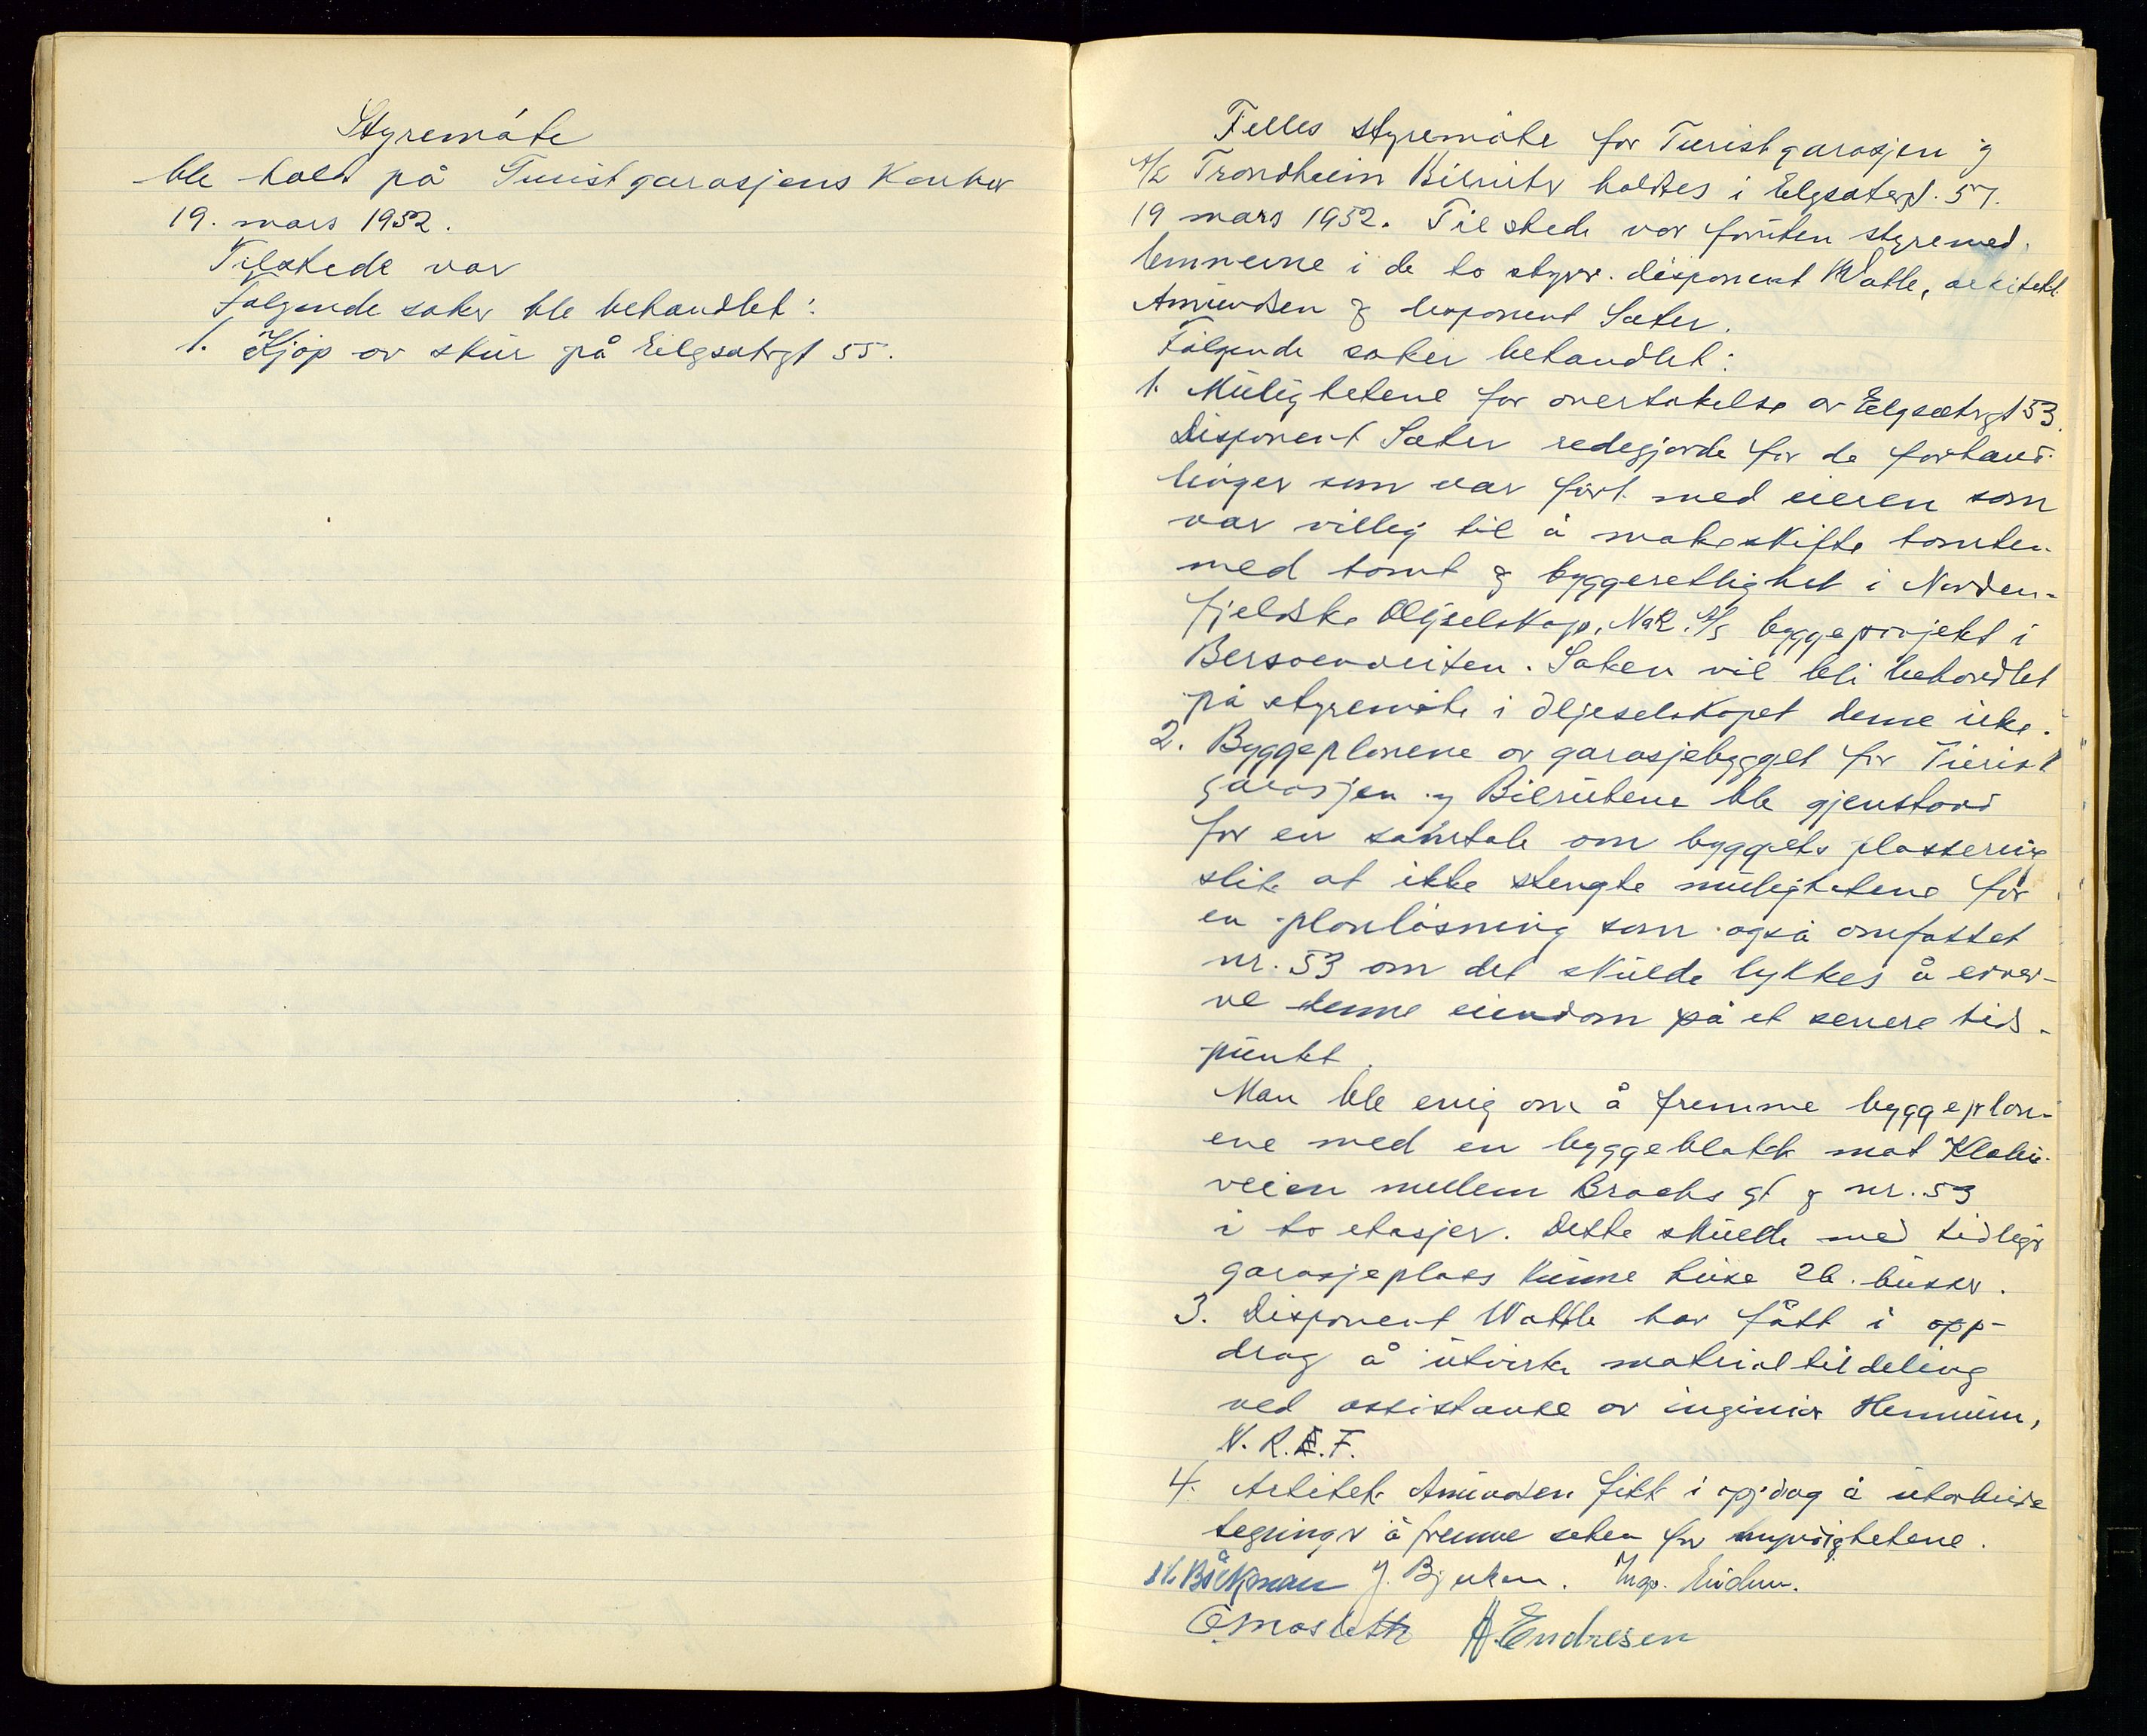 Styremøte
ble holdt på Turistgarasjens Kontor
19. mars 1952.
Tilstede var
Følgende saker ble behandlet:
1. Kjøp av skur på Elgsetrgt 55.
Felles styremøte for Turistgarasjen og
A/L Trondheim Bilruter holdtes i Elgsetergt. 51.
19 mars 1952. Til stede var foruten styremed-
lemmerne i de to styrer. disponent Watle, arkitekt
Amundsen og disponent Sæter.
Følgende saker behandlet:
1. Mulighetene for overtakelse av Elgsætrgt 53.
Disponent Sæter redegjorde for de forhand-
linger som var ført med eieren som
var villig til å makeskifte tomten
med tomt og byggerettighet i Norden-
fjeldske Oljeselskap, NaR. A/S byggeprosjekt i
Bersvendveiten. Saken vil bli behandlet
på styremøte i Oljeselskapet denne uke.
2. Byggeplanene av garasjebygget for Turist
garasjen og Bilrutene ble gjenstand
for en samtale om byggets plassering
slik at ikke stengte mulighetene for
en planløsning som også omfattet
nr. 53 om det skulde lykkes å erver-
ve denne eiendom på et senere tids-
punkt.
Man ble enig om å fremme byggeplan-
ene med en byggeblokk mot Klæbu-
veien mellem Brochs gt og nr. 53
i to etasjer. Dette skulde med tidliger
garasjeplass kunne huse 26. busser.
3. Disponent Watle har fått i opp-
drag å utvirke materialtildeling
ved assistanse av ingeniør Hennum,
N. R. F.
4. Arkitekt Amundsen fikk i oppdrag å utarbeide
tegninger å fremme saken for myndighetene.
Bøckman J. Bjerkan. Inge.
O. Mosleth H. Endresen